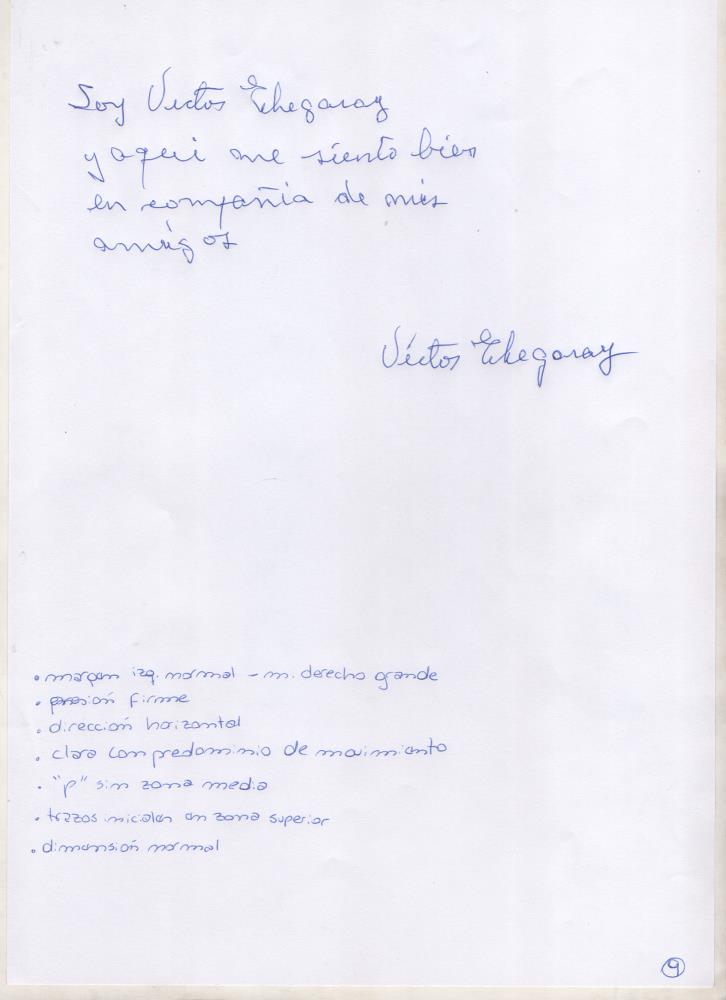 Soy Victos Echegaray
y aqui me siento bien
en compañia de mis
amigos
Victos Echegaray
• margen izq. normal - m. derecho grande
• presión firme
• dirección horizontal
• clara con predominio de movimiento
• "p" sin zona media
• trazos iniciales en zona superior
• dimensión normal
9